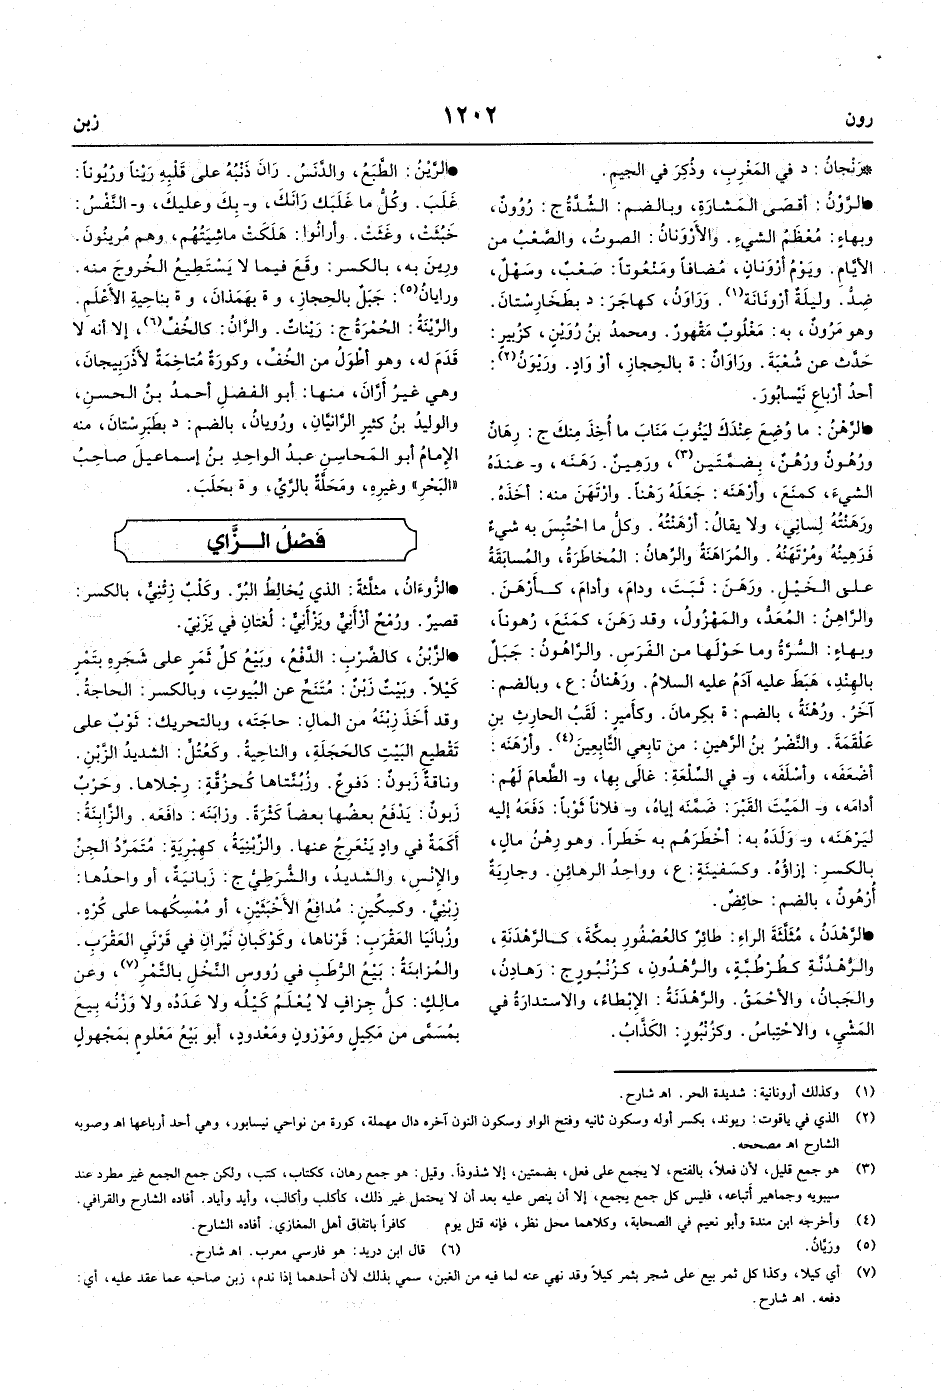 رون
١٢٠٢
زبن
*رَنْجانُ: د في المَغْرِبِ، وذُكِرَ في الجيمِ.
●الرَّوْنُ: أقصَى المَشارَةِ، وبالضم: الشِّدَّةُ ج: رُوُونٌ،
وبهاءٍ: مُعْظَمُ الشيءِ. والأَرْوَنانُ: الصوتُ، والصَّعْبُ من
الأيَّامِ. ويَوْمُ أرْوَنانٍ، مُضافاً ومَنْعُوتاً: صَعْبٌ، وسَهْلٌ،
ضِدٌّ. وليلَةٌ أرْوَنانَةٌ(١). ورَاوَنُ، كهاجَرَ: د بطَخارِسْتانَ.
وهو مَرُونٌ، به: مَغْلُوبٌ مَقْهورٌ. ومحمدُ بنُ رُوَيْنٍ، كزُبيرٍ:
حَدَّث عن شُعْبَةَ. ورَاوَانُ: ة بالحِجازِ، أوْ وَادٍ. ورَيْوَنُ(٢):
أحدُ أرْباعِ نَيْسابُورَ.
●الرَّهْنُ: ما وُضِعَ عِنْدَكَ لِيَنُوبَ مَنَابَ ما أُخِذَ مِنكَ ج: رِهانٌ
ورُهُونٌ ورُهُنٌ، بِضمَّتينِ(٣)، ورَهِينٌ. رَهَنَه، و- عندَهُ
الشيءَ، كمنَعَ، وأرْهَنَه: جَعَلَهُ رَهْناً. وارْتَهَنَ منه: أخَذَهُ.
ورَهَنْتُهُ لِساني، ولا يقالُ: أرْهَنْتُهُ. وكلُّ ما احْتُبِسَ به شيءٌ
فَرَهِينُهُ ومُرْتَهَنُهُ. والمُرَاهَنَةُ والرِّهانُ: المُخاطَرَةُ، والمُسابَقَةُ
على الخَيْلِ. ورَهَنَ: ثَبَتَ، ودامَ، وأدامَ، كأرْهَنَ.
والرَّاهِنُ: المُعَدُّ، والمَهْزُولُ، وقد رَهَنَ، كمَنَعَ، رُهوناً،
وبهاءٍ: السُّرَّةُ وما حَوْلَها من الفَرَسِ. والرَّاهُونُ: جَبَلٌ
بالهِنْدِ، هَبَطَ عليه آدَمُ عليه السلامُ. ورَهْنانُ: ع، وبالضم:
آخَرُ. ورُهْنَةُ، بالضم: ة بكِرمانَ. وكأَمِيرٍ: لَقَبُ الحارِثِ بنِ
عَلْقَمَةَ. والنَّضْرُ بنُ الرَّهينِ: من تابِعي التَّابِعينَ(٤). وأرْهَنَه:
أضْعَفَه، وأسْلَفَه، و- في السِّلْعَةِ: غالَى بها، و- الطَّعامَ لَهُم:
أدامَه، و- المَيِّتَ القَبْرَ: ضَمَّنَه إياهُ، و- فلاناً ثَوْباً: دَفَعَهُ إليه
ليَرْهَنَه، و- وَلَدَهُ به: أخْطَرَهُم به خَطَراً. وهو رِهْنُ مالٍ،
بالكسر: إزاؤُهُ. وكسَفينَةٍ: ع، وواحِدُ الرهائِنِ. وجارِيَةٌ
أُرْهُونٌ، بالضم: حائِضٌ.
●الرَّهْدَنُ، مُثَلَّثَةَ الراءِ: طائِرٌ كالعُصْفورِ بمكَّةَ، كالرَّهْدَنَةِ،
والرُّهْدُنَّةِ كطُرْطُبَّةٍ، والرُّهْدُونِ، كزُنْبورٍ ج: رَهادِنُ،
والجَبانُ، والأحْمَقُ. والرَّهْدَنَةُ: الإِبْطاءُ، والاستدارَةُ في
المَشْيِ، والاحْتِباسُ. وكزُنْبُورٍ: الكَذَّابُ.
●الرَّيْنُ: الطَّبَعُ، والدَّنَسُ. رَانَ ذَنْبُهُ على قَلْبِهِ رَيْناً ورُيُوناً:
غَلَبَ. وكُلُّ ما غَلَبَكَ رَانَكَ، و- بِكَ وعليكَ، و- النَّفْسُ:
خَبُثَتْ، وغَثَتْ. وأرانُوا: هَلَكَتْ ماشِيَتُهُم، وهم مُرِينُونَ.
ورِينَ به، بالكسر: وقَعَ فيما لا يَسْتَطِيعُ الخُروجَ منه.
ورايانُ(٥): جَبَلٌ بالحِجازِ، و ة بهَمَذانَ، و ة بناحِيةِ الأعْلَمِ.
والرِّيْنَةُ: الخُمْرَةُ ج: رَيْناتٌ. والرَّانُ: كالخُفِّ(٦)، إلا أنه لا
قَدَمَ له، وهو أطْوَلُ من الخُفِّ، وكورَةٌ مُتاخِمَةٌ لأَذْرَبيجانَ،
وهي غيرُ أَرَّانَ، منها: أبو الفضلِ أحمدُ بنُ الحسنِ،
والوليدُ بنُ كثيرٍ الرَّانِيَّانِ، ورُويانُ، بالضم: د بطَبَرِسْتانَ، منه
الإِمامُ أبو المَحاسِنِ عبدُ الواحِدِ بنُ إسماعيلَ صاحِبُ
«البَحْرِ» وغيرِهِ، ومَحَلَّةٌ بالرَّيِّ، و ة بحَلَبَ.
فَصْلُ الــزَّاي
●الزُّوءَانُ، مثلَّثةً: الذي يُخالِطُ البُرَّ. وكَلْبٌ زِئْنِيٌّ، بالكسر:
قصيرٌ. ورُمْحٌ أزْأَنِيٌّ ويَزْأَنِيٌّ: لُغتانِ في يَزَنِيّ.
●الزَّبْنُ، كالضَّرْبِ: الدَّفْعُ، وبَيْعُ كلِّ ثَمَرٍ على شَجَرِهِ بتَمْرٍ
كَيْلاً. وبَيْتٌ زَبْنٌ: مُتَنَحٍّ عن البُيوتِ، وبالكسر: الحاجةُ.
وقد أخَذَ زِبْنَهُ من المالِ: حاجَتَه، وبالتحريك: ثَوْبٌ على
تَقْطيعِ البَيْتِ كالحَجَلَةِ، والناحيةُ. وكَعُتُلٍّ: الشديدُ الزَّبْنِ.
وناقةٌ زَبونٌ: دَفوعٌ. وزُبُنَّتاها كحُزُقَّةٍ: رِجْلاها. وحَرْبٌ
زَبونٌ: يَدْفَعُ بعضُها بعضاً كَثْرَةً. وزابَنَه: دافَعَه. والزَّابِنَةُ:
أَكَمَةٌ في وادٍ يَنْعَرِجُ عنها. والزِّبْنِيَةُ، كهِبْرِيَةٍ: مُتَمَرِّدُ الجِنِّ
والإِنسِ، والشديدُ، والشُّرَطِيُّ ج: زَبانيَةٌ، أو واحِدُها:
زِبْنِيٌّ. وكسِكِّينٍ: مُدافِعُ الأَخْبَثَيْنِ، أو مُمْسِكُهما على كُرْهٍ.
وزُبانَيَا العَقْرَبِ: قَرْناها، وكَوْكَبانِ نَيِّرانِ في قَرْنَيِ العَقْرَبِ.
والمُزابَنَةُ: بَيْعُ الرُّطَبِ في رُووسِ النَّخْلِ بالتَّمْرِ(٧)، وعن
مالِكٍ: كلُّ جِزافٍ لا يُعْلَمُ كَيْلُه ولا عَدَدُه ولا وَزْنُه بِيعَ
بمُسَمًّى من مَكِيلٍ ومَوْزونٍ ومَعْدودٍ، أبو بَيْعُ مَعْلومٍ بمَجْهولٍ
(١) وكذلك أرونانية: شديدة الحر. اهـ شارح.
(٢) الذي في ياقوت: ريوند، بكسر أوله وسكون ثانيه وفتح الواو وسكون النون آخره دال مهملة، كورة من نواحي نيسابور، وهي أحد أرباعها اهـ وصوبه
الشارح اهـ مصححه.
(٣) هو جمع قليل، لأن فعلاً، بالفتح، لا يجمع على فعل، بضمتين، إلا شذوذاً. وقيل: هو جمع رهان، ككتاب، كتب، ولكن جمع الجمع غير مطرد عند
سيبويه وجماهير أتباعه، فليس كل جمع يجمع، إلا أن ينص عليه بعد أن لا يحتمل غير ذلك، كأكلب وأكالب، وأيد وأياد. أفاده الشارح والقرافي.
(٤) وأخرجه ابن مندة وأبو نعيم في الصحابة، وكلاهما محل نظر، فإنه قتل يوم كافراً باتفاق أهل المغازي. أفاده الشارح.
(٥) ورَيَّانُ. (٦) قال ابن دريد: هو فارسي معرب. اهـ شارح.
(٧) أي كيلا، وكذا كل ثمر بيع على شجر بثمر كيلاً وقد نهي عنه لما فيه من الغبن، سمي بذلك لأن أحدهما إذا ندم، زبن صاحبه عما عقد عليه، أي:
دفعه. اهـ شارح.